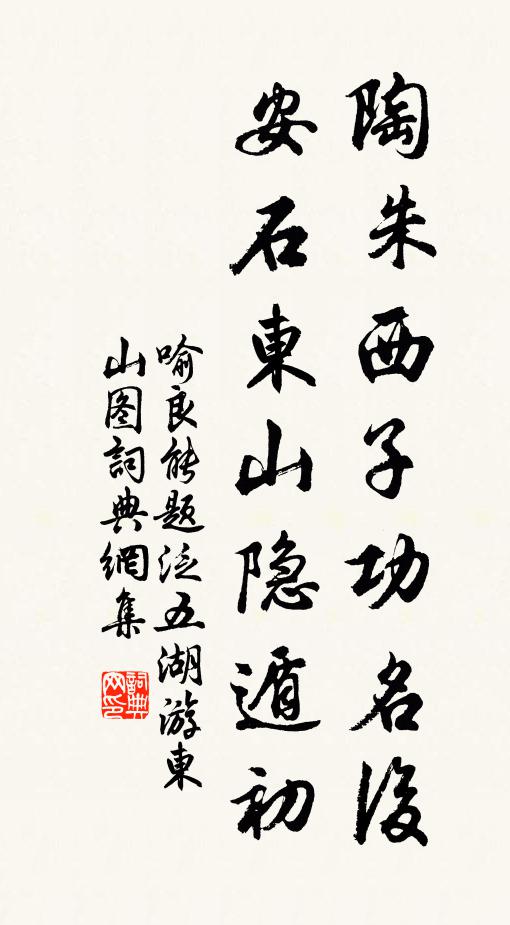 陶朱西子功名後
安石東山隐遁初
喻良能题泛五湖游東
山图詞典網集
詞典
网印